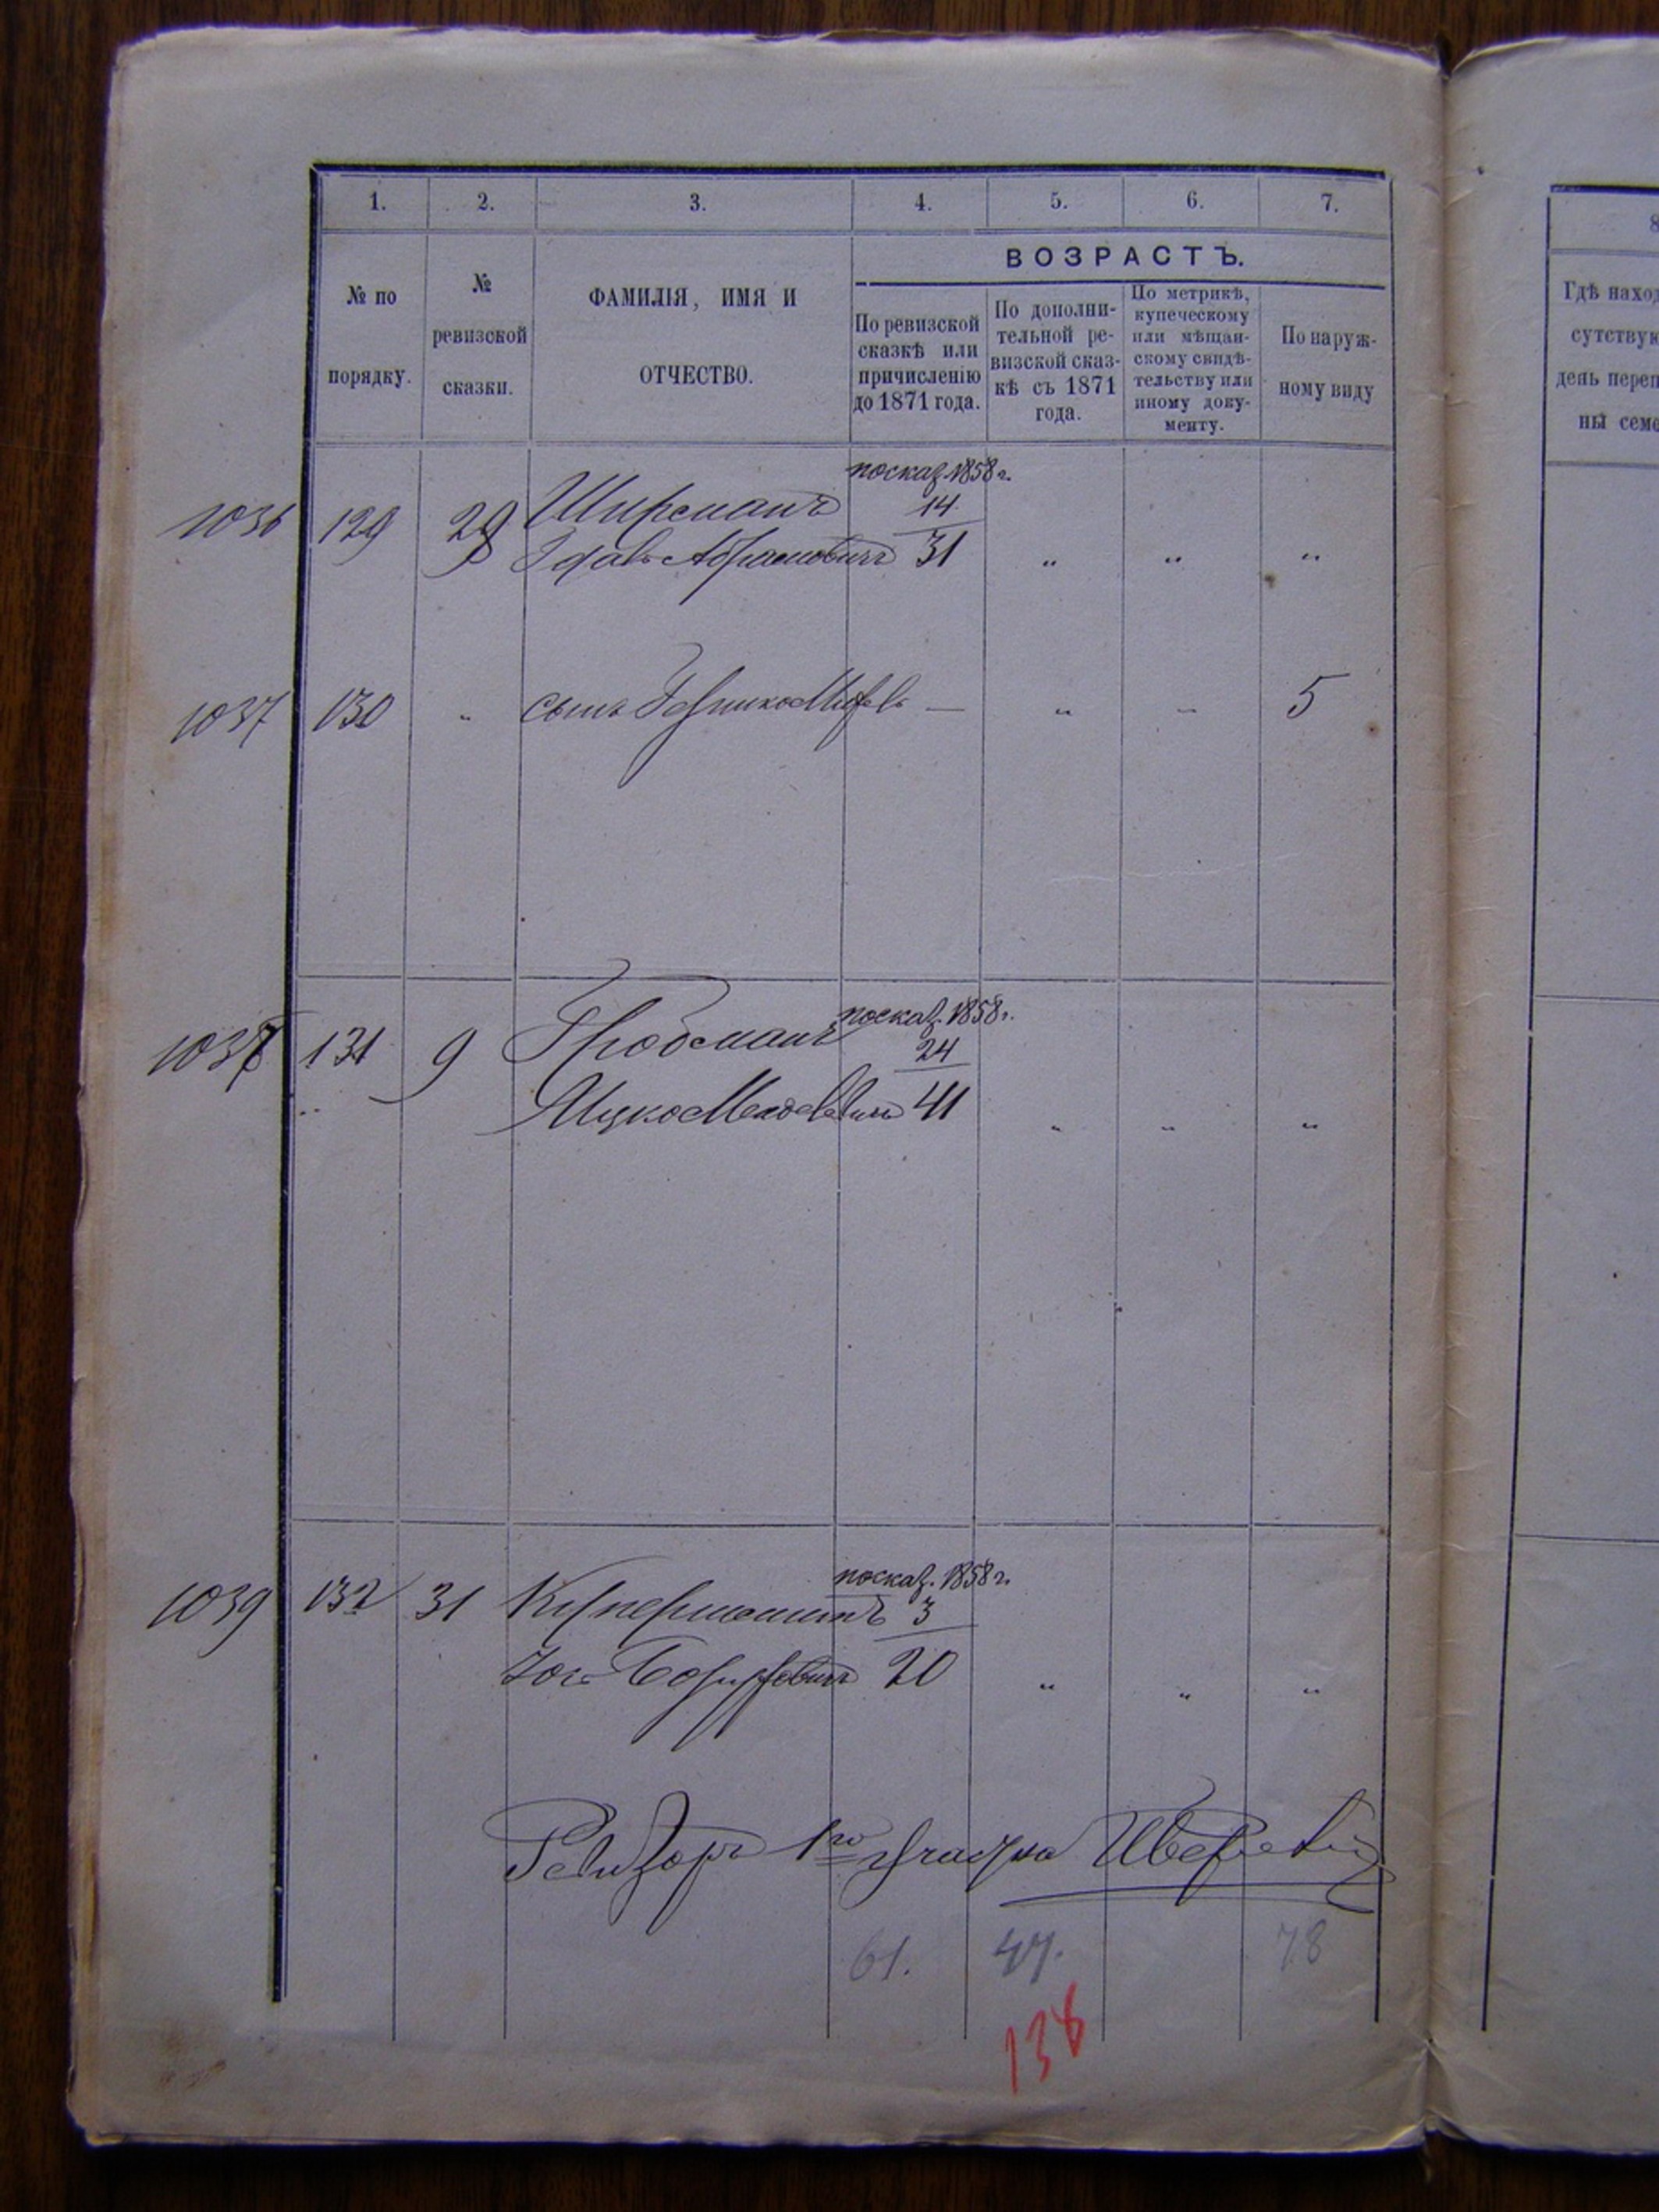 1. 2. 3. 4. 5. 6. 7.
ВОЗРАСТЪ.
№ по
порядку.
№
ревизской
сказки.
ФАМИЛІЯ, ИМЯ И
ОТЧЕСТВО.
По ревизской
сказкѣ или
причисленію
до 1871 года.
По дополни-
тельной ре-
визской сказ-
кѣ съ 1871
года.
По метрикѣ,
купеческому
или мѣщан-
скому свидѣ-
тельству или
иному доку-
менту.
По наруж-
ному виду
8
Гдѣ наход
сутствую
день переп
ны семе
по сказ. 1858 г.
1036 129 29 14
Абрамовичъ 31 „ „ „
1037 130 „ сынъ — „ „ 5
по сказ. 1858 г.
1038 131 9 Гробманъ 24
Ицко 41 „ „ „
по сказ. 1858 г.
1039 132 31 3
20 „ „ „
Ревизоръ 1го участка
61. 47. 78
138